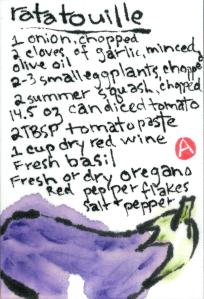 ratatouille
1 onion, chopped
2 cloves of garlic, minced
olive oil
2-3 small eggplants, chopped
2 summer squash, chopped
14.5 oz can diced tomato
2 TBSP tomato paste
1 cup dry red wine
Fresh basil
Fresh or dry oregano
Red pepper flakes
Salt + pepper
A